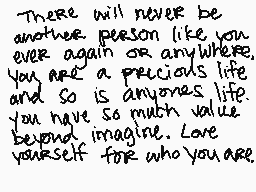 There will never be
another person like you
ever again or anywhere,
you are a precious life
and so is anyones life.
you have so much value
beyond imagine. Love
yourself for who you are.